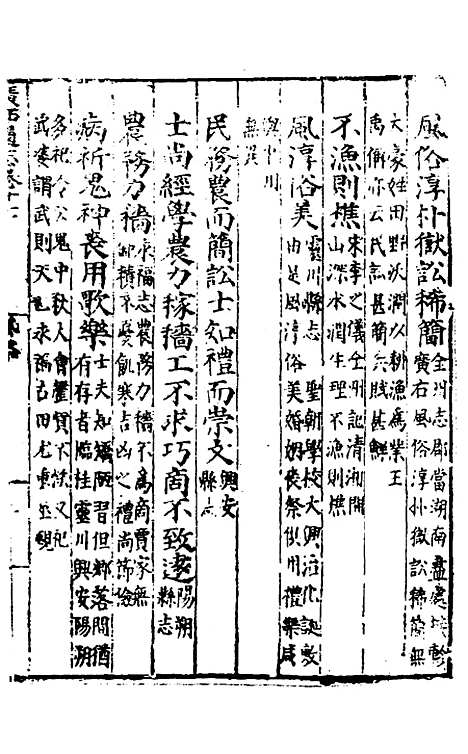 風俗淳朴獄訟稀簡全州志郡當湖南盡處
廣右風俗淳朴獄訟稀簡無
大豪姓田野
以耕漁為業王
禹偁亦云民訟甚簡兵賦甚鮮
不漁則樵宋李之儀全州記清湘間
山深水澗生理不漁則樵
風淳俗美靈川縣志聖朝學校大興治化誕敷
由是風淳俗美婚姻喪祭
州禮樂咸
無異
民務農而簡訟士知禮而崇文興安
縣志
士尚經學農力稼穡工不求巧商不致遠陽朔
縣志
農務力穡永福志農務力穡不為商賈家無
積不憂飢寒吉凶之禮尚節儉
病祈鬼神喪用歌樂士夫知矯陋習但鄉落間猶
有存者臨桂靈川興安陽朔
多祀
鬼中秋人會
又祀
武婆謂武則天也求福古田尤重巫覡
廣西通志卷十